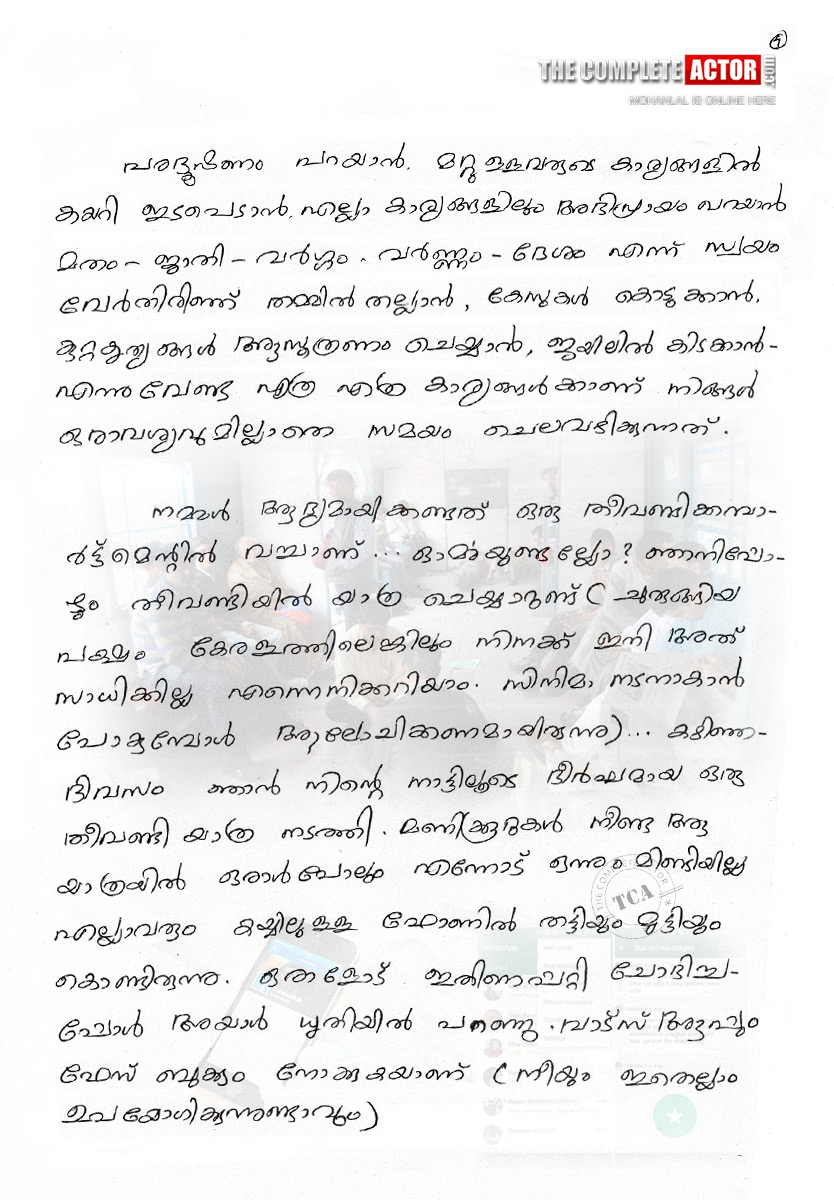 5
THE COMPLETE ACTOR .com
MOHANLAL IS ONLINE HERE
പരദൂഷണം പറയാൻ. മറ്റുള്ളവരുടെ കാര്യങ്ങളിൽ
കയറി ഇടപെടാൻ. എല്ലാ കാര്യങ്ങളിലും അഭിപ്രായം പറയാൻ
മതം - ജാതി - വർഗ്ഗം - വർണ്ണം - ദേശം എന്ന് സ്വയം
വേർതിരിഞ്ഞ് തമ്മിൽ തല്ലാൻ, കേസുകൾ കൊടുക്കാൻ.
കുറ്റകൃത്യങ്ങൾ ആസൂത്രണം ചെയ്യാൻ, ജയിലിൽ കിടക്കാൻ-
എന്നുവേണ്ട എത്ര എത്ര കാര്യങ്ങൾക്കാണ് നിങ്ങൾ
ഒരാവശ്യവുമില്ലാതെ സമയം ചെലവഴിക്കുന്നത്.
നമ്മൾ ആദ്യമായിക്കണ്ടത് ഒരു തീവണ്ടിക്കമ്പാ-
ർട്ട്മെന്റിൽ വച്ചാണ്... ഓർമ്മയുണ്ടല്ലോ? ഞാനിപ്പോ-
ഴും തീവണ്ടിയിൽ യാത്ര ചെയ്യാറുണ്ട് ( ചുരുങ്ങിയ
പക്ഷം കേരളത്തിലെങ്കിലും നിനക്ക് ഇനി അത്
സാധിക്കില്ല എന്നെനിക്കറിയാം. സിനിമാ നടനാകാൻ
പോകുമ്പോൾ ആലോചിക്കണമായിരുന്നു)... കഴിഞ്ഞ-
ദിവസം ഞാൻ നിന്റെ നാട്ടിലൂടെ ദീർഘമായ ഒരു
തീവണ്ടി യാത്ര നടത്തി. മണിക്കൂറുകൾ നീണ്ട ആ
യാത്രയിൽ ഒരാൾപോലും എന്നോട് ഒന്നും മിണ്ടിയില്ല
എല്ലാവരും കയ്യിലുള്ള ഫോണിൽ തട്ടിയും മുട്ടിയും
കൊണ്ടിരുന്നു. ഒരാളോട് ഇതിനെപ്പറ്റി ചോദിച്ച-
പ്പോൾ അയാൾ ധൃതിയിൽ പറഞ്ഞു. വാട്സ് ആപ്പും
ഫേസ് ബുക്കും നോക്കുകയാണ് ( നീയും ഇതെല്ലാം
ഉപയോഗിക്കുന്നുണ്ടാവും)
THE COMPLETE ACTOR
TCA